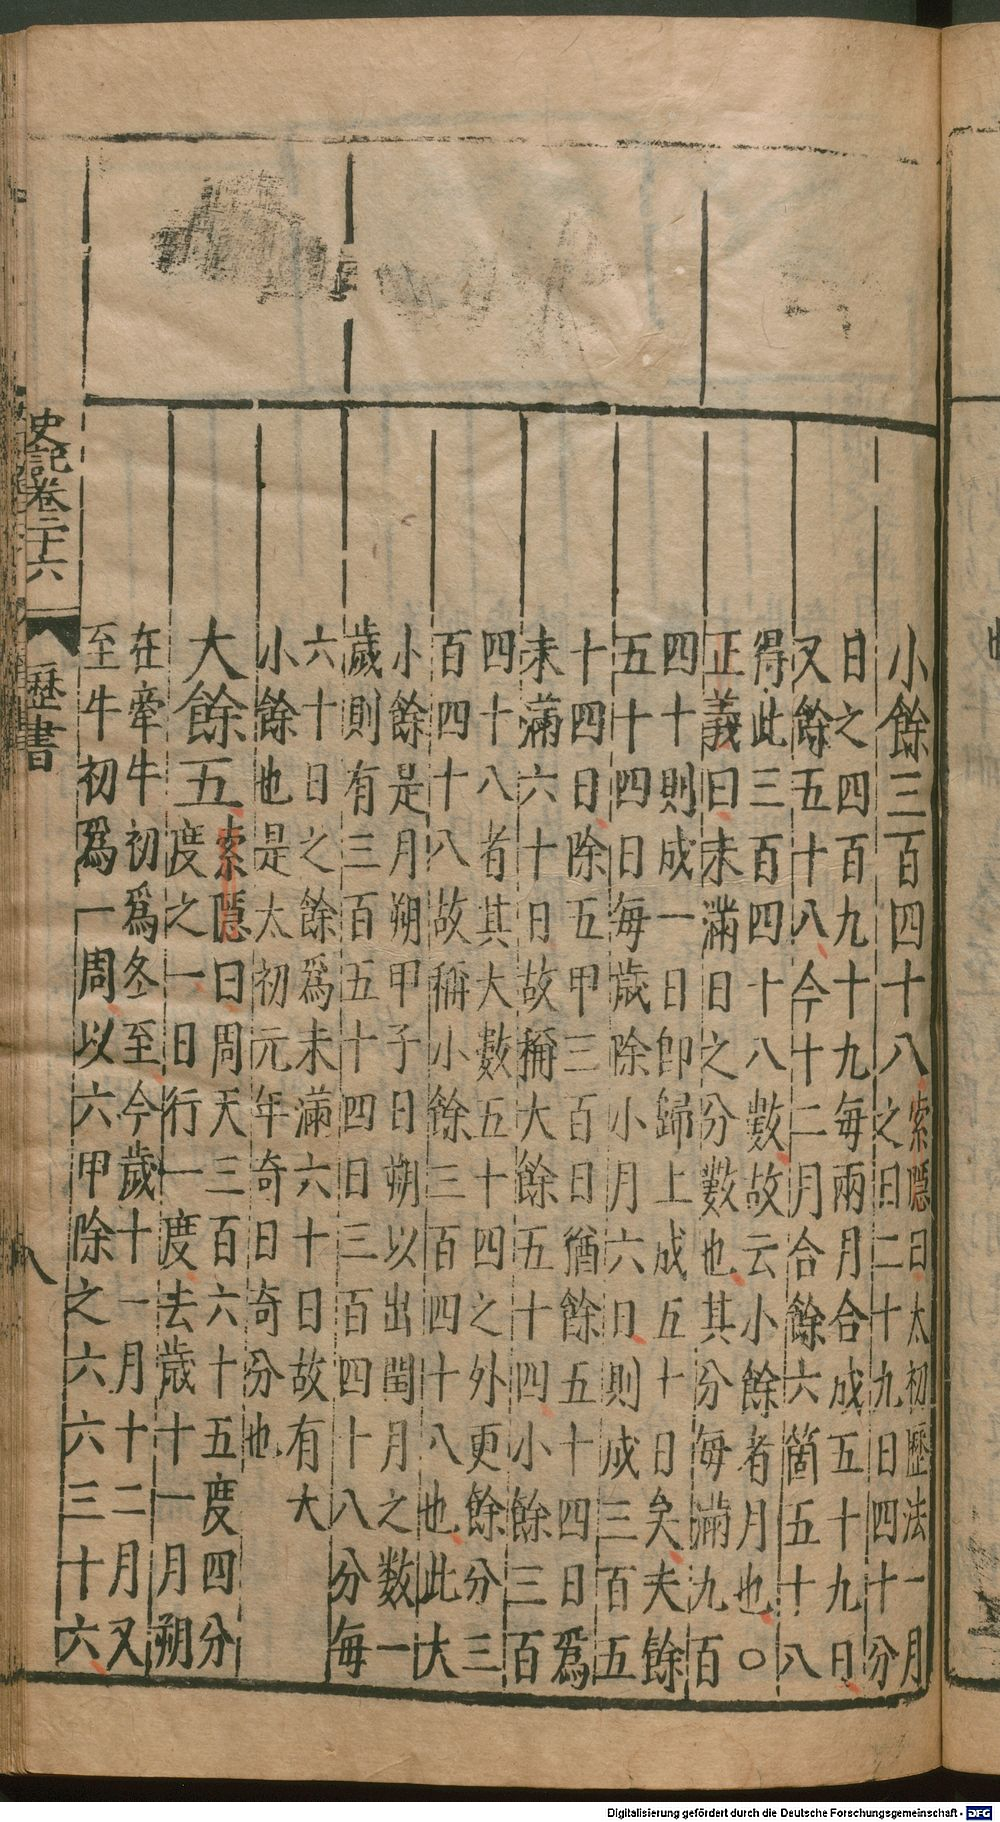 小餘三百四十八
索隱曰太初歷法一月
之日二十九日四十分
日之四百九十九每兩月合成五十九日
又餘五十八今十二月合餘六箇五十八
得此三百四十八數故云小餘者月也〇
正義曰未滿日之分數也其分每滿九百
四十則成一日卽歸上成五十日矣夫餘
五十四日每歲除小月六日則成三百五
十四日除五甲三百日猶餘五十四日爲
未滿六十日故稱大餘五十四小餘三百
四十八者其大數五十四之外更餘分三
百四十八故稱小餘三百四十八也此大
小餘是月朔甲子日朔以出閏月之数一
歲則有三百五十四日三百四十八分每
六十日之餘爲未滿六十日故有大
小餘也是太初元年奇日奇分也
大餘五
索隱曰周天三百六十五度四分
度之一日行一度去歲十一月朔
在牽牛初爲冬至今歲十一月十二月又
至牛初爲一周以六甲除之六六三十六
史記卷二十六
歷書
八
Digitalisierung gefördert durch die Deutsche Forschungsgemeinschaft - DFG